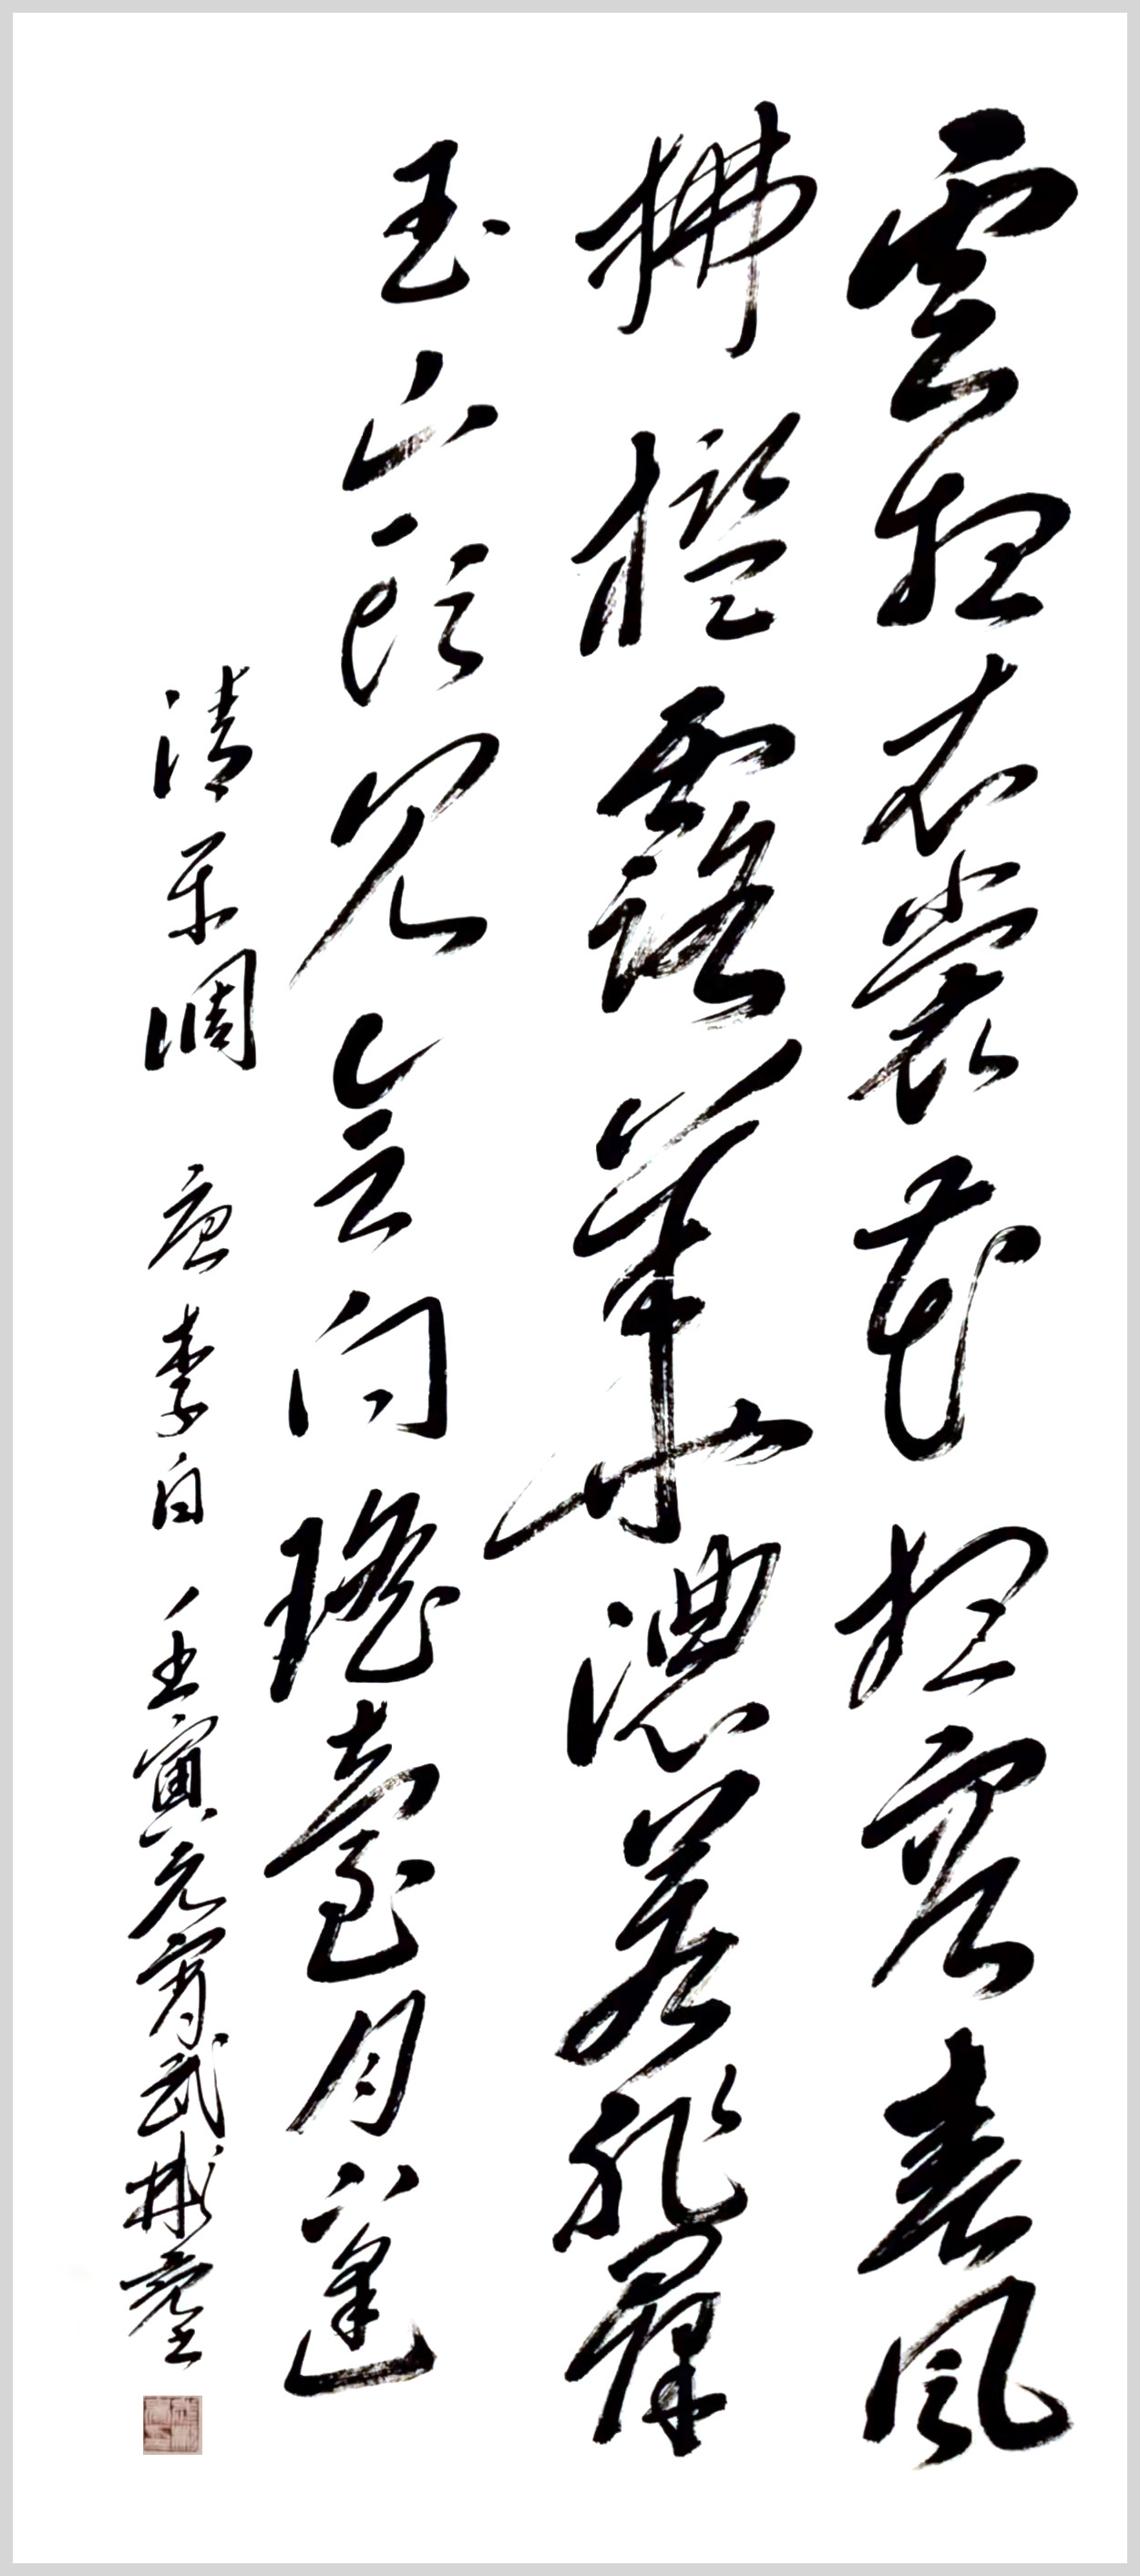 雲想衣裳花想容春風
拂檻露華濃若非羣
玉山頭見會向瑤臺月下逢
清平調 唐 李白 壬寅元宵武彬